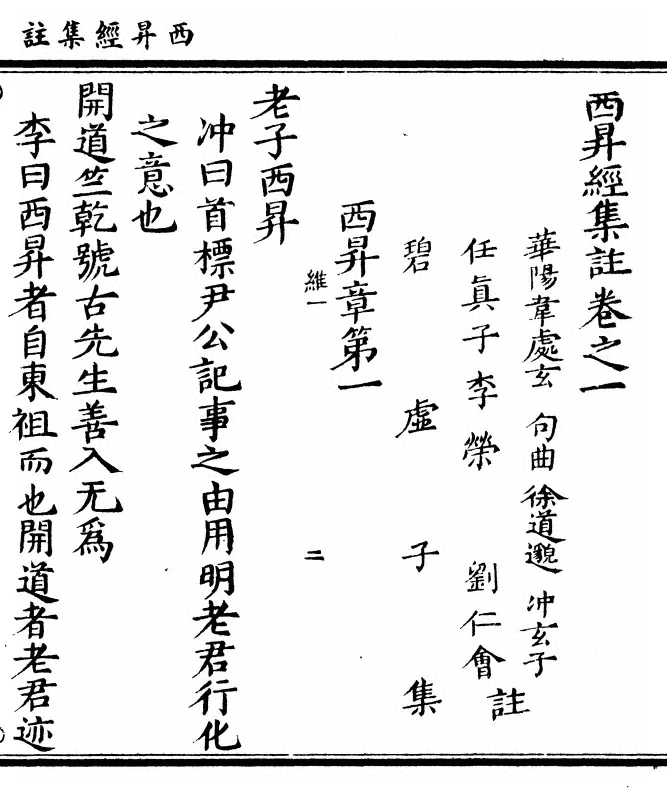 西昇經集註
西昇經集註卷之一
華陽韋處玄 句曲徐道邈 冲玄子
任眞子李榮 劉仁會 註
碧虛子 集
西昇章第一
維一 二
老子西昇
冲曰首標尹公記事之由用明老君行化
之意也
開道竺乾號古先生善入无爲
李曰西昇者自東徂而也開道者老君迹